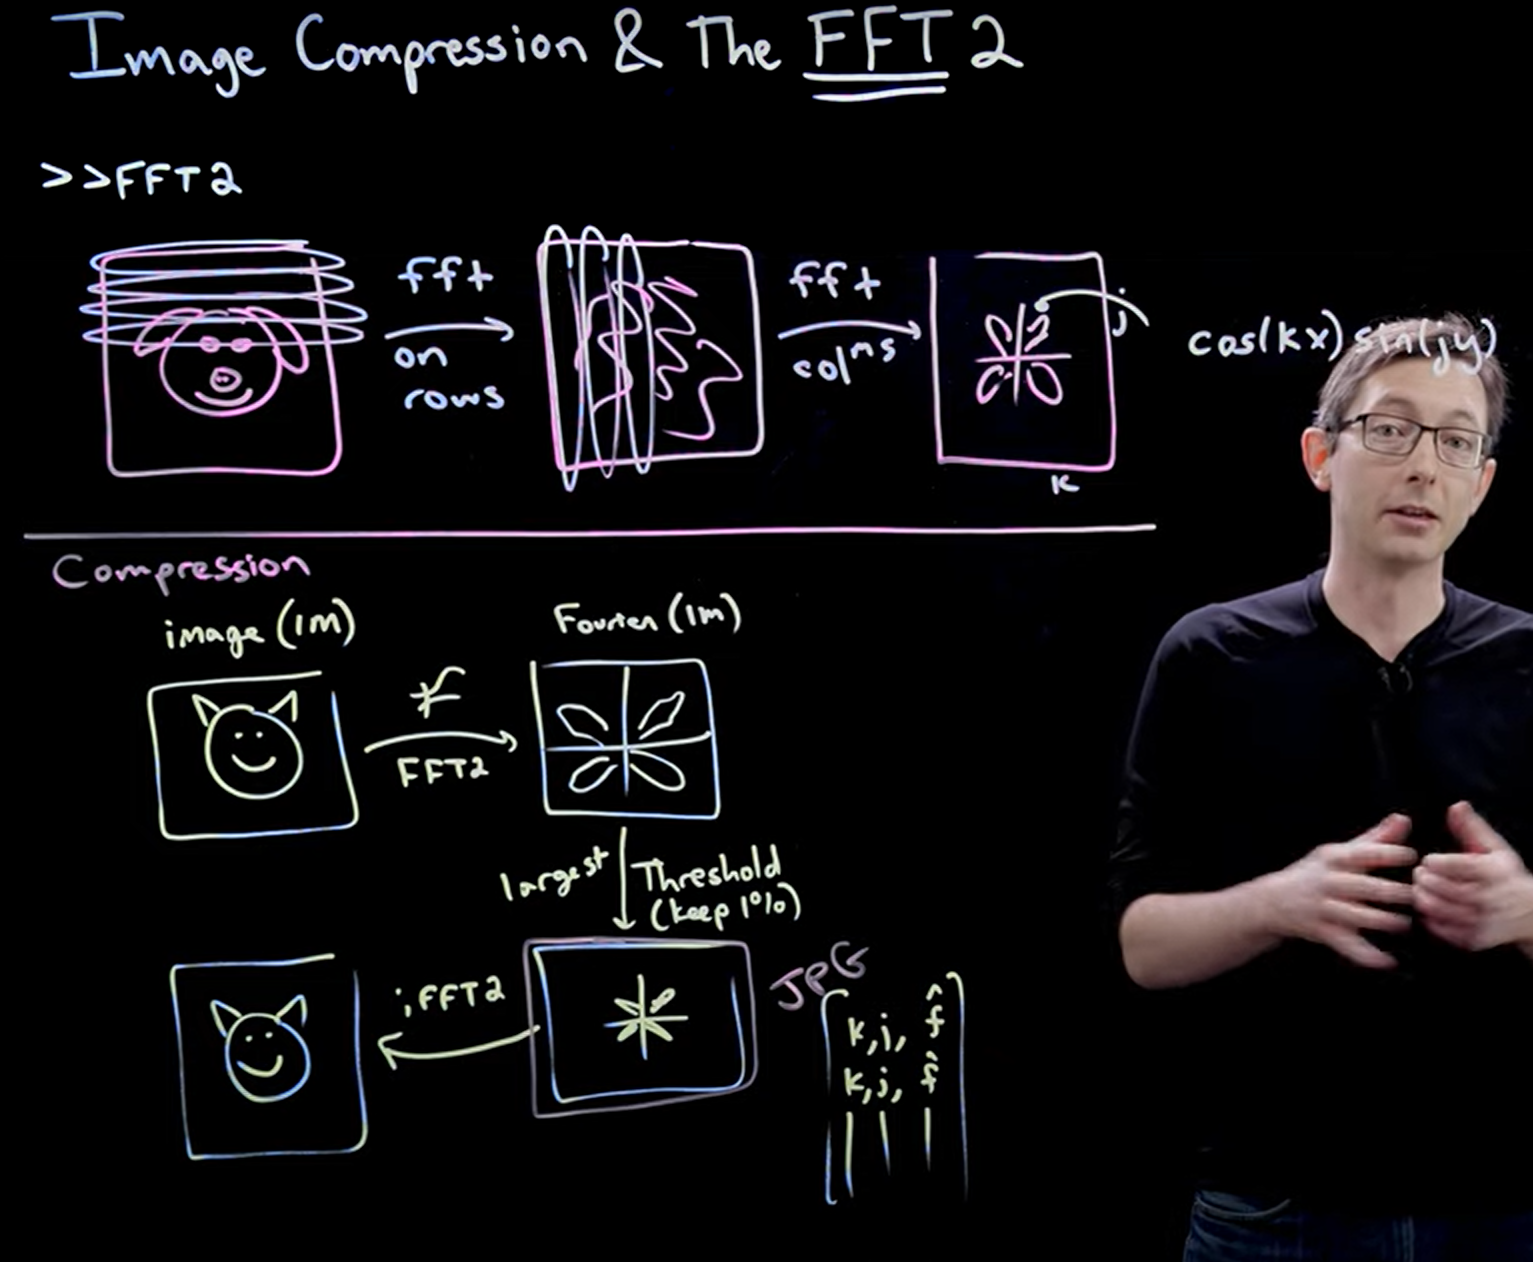 Image Compression & The FFT2
>>FFT2
fft
on
rows
fft
colⁿs
j
cos(kx) sin(jy)
k
Compression
image (1M)
Fourier (1M)
FFT2
largest
Threshold
(keep 1%)
iFFT2
JPG
k, j, f̂
k, j, f̂